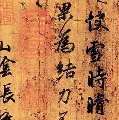 快雪時晴
果為結力不
山陰張